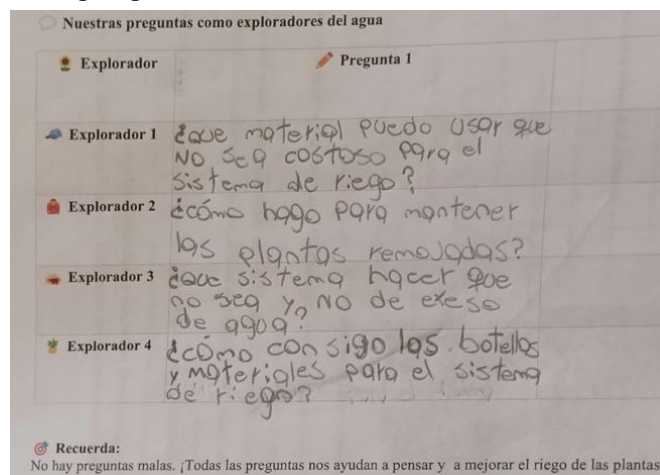 Nuestras preguntas como exploradores del agua
Explorador
Pregunta 1
Explorador 1
¿que material puedo usar que
No sea costoso para el
sistema de riego?
Explorador 2
¿cómo hago para mantener
las plantas remojadas?
Explorador 3
¿que sistema hacer que
no sea y NO de exeso
de agua?
Explorador 4
¿cómo consigo las botellas
y materiales para el sistema
de riego?
Recuerda:
No hay preguntas malas. ¡Todas las preguntas nos ayudan a pensar y a mejorar el riego de las plantas